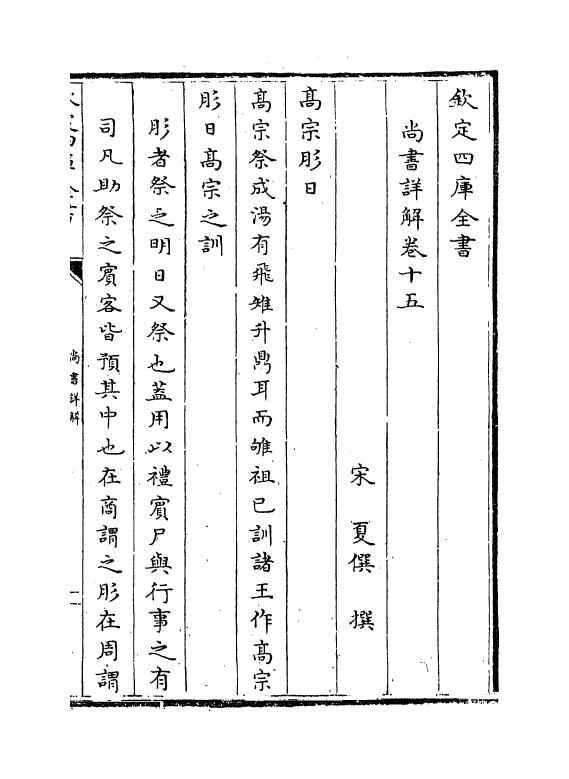 欽定四庫全書
尚書詳解卷十五
宋 夏僎 撰
髙宗肜日
髙宗祭成湯有飛雉升鼎耳而雊祖已訓諸王作髙宗
肜日髙宗之訓
肜者祭之明日又祭也蓋用以禮賓尸與行事之有
司凡助祭之賓客皆預其中也在商謂之肜在周謂
尚書詳解